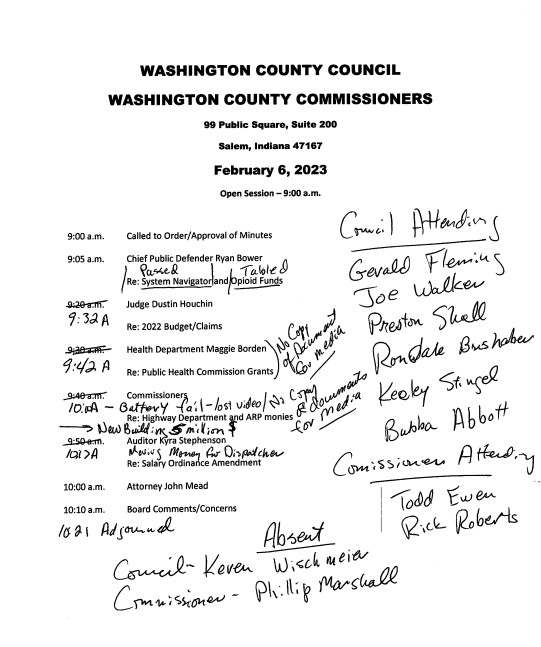 WASHINGTON COUNTY COUNCIL
WASHINGTON COUNTY COMMISSIONERS
99 Public Square, Suite 200
Salem, Indiana 47167
February 6, 2023
Open Session – 9:00 a.m.
9:00 a.m. Called to Order/Approval of Minutes
9:05 a.m. Chief Public Defender Ryan Bower
Passed Tabled
Re: System Navigator and Opioid Funds
9:20 a.m. Judge Dustin Houchin
9:32 A
Re: 2022 Budget/Claims
9:30 a.m. Health Department Maggie Borden
9:42 A
Re: Public Health Commission Grants
No Copy
of Document
for media
9:40 a.m. Commissioners
10:00A – Battery fail – lost video/No Copy
of documents
for media
Re: Highway Department and ARP monies
→ New Building 5 million $
9:50 a.m. Auditor Kyra Stephenson
1017A Moving Money for Dispatcher
Re: Salary Ordinance Amendment
10:00 a.m. Attorney John Mead
10:10 a.m. Board Comments/Concerns
10:21 Adjourned
Council Attending
Gerald Fleming
Joe Walker
Preston Shell
Rondale Brishaber
Keeley Stingel
Bubba Abbott
Comissioners Attending
Todd Ewen
Rick Roberts
Absent
Council – Keven Wischmeier
Commissioner – Phillip Marshall